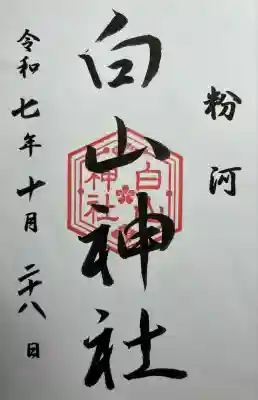 粉河
白山神社
白山
神社
令和七年十月二十八日